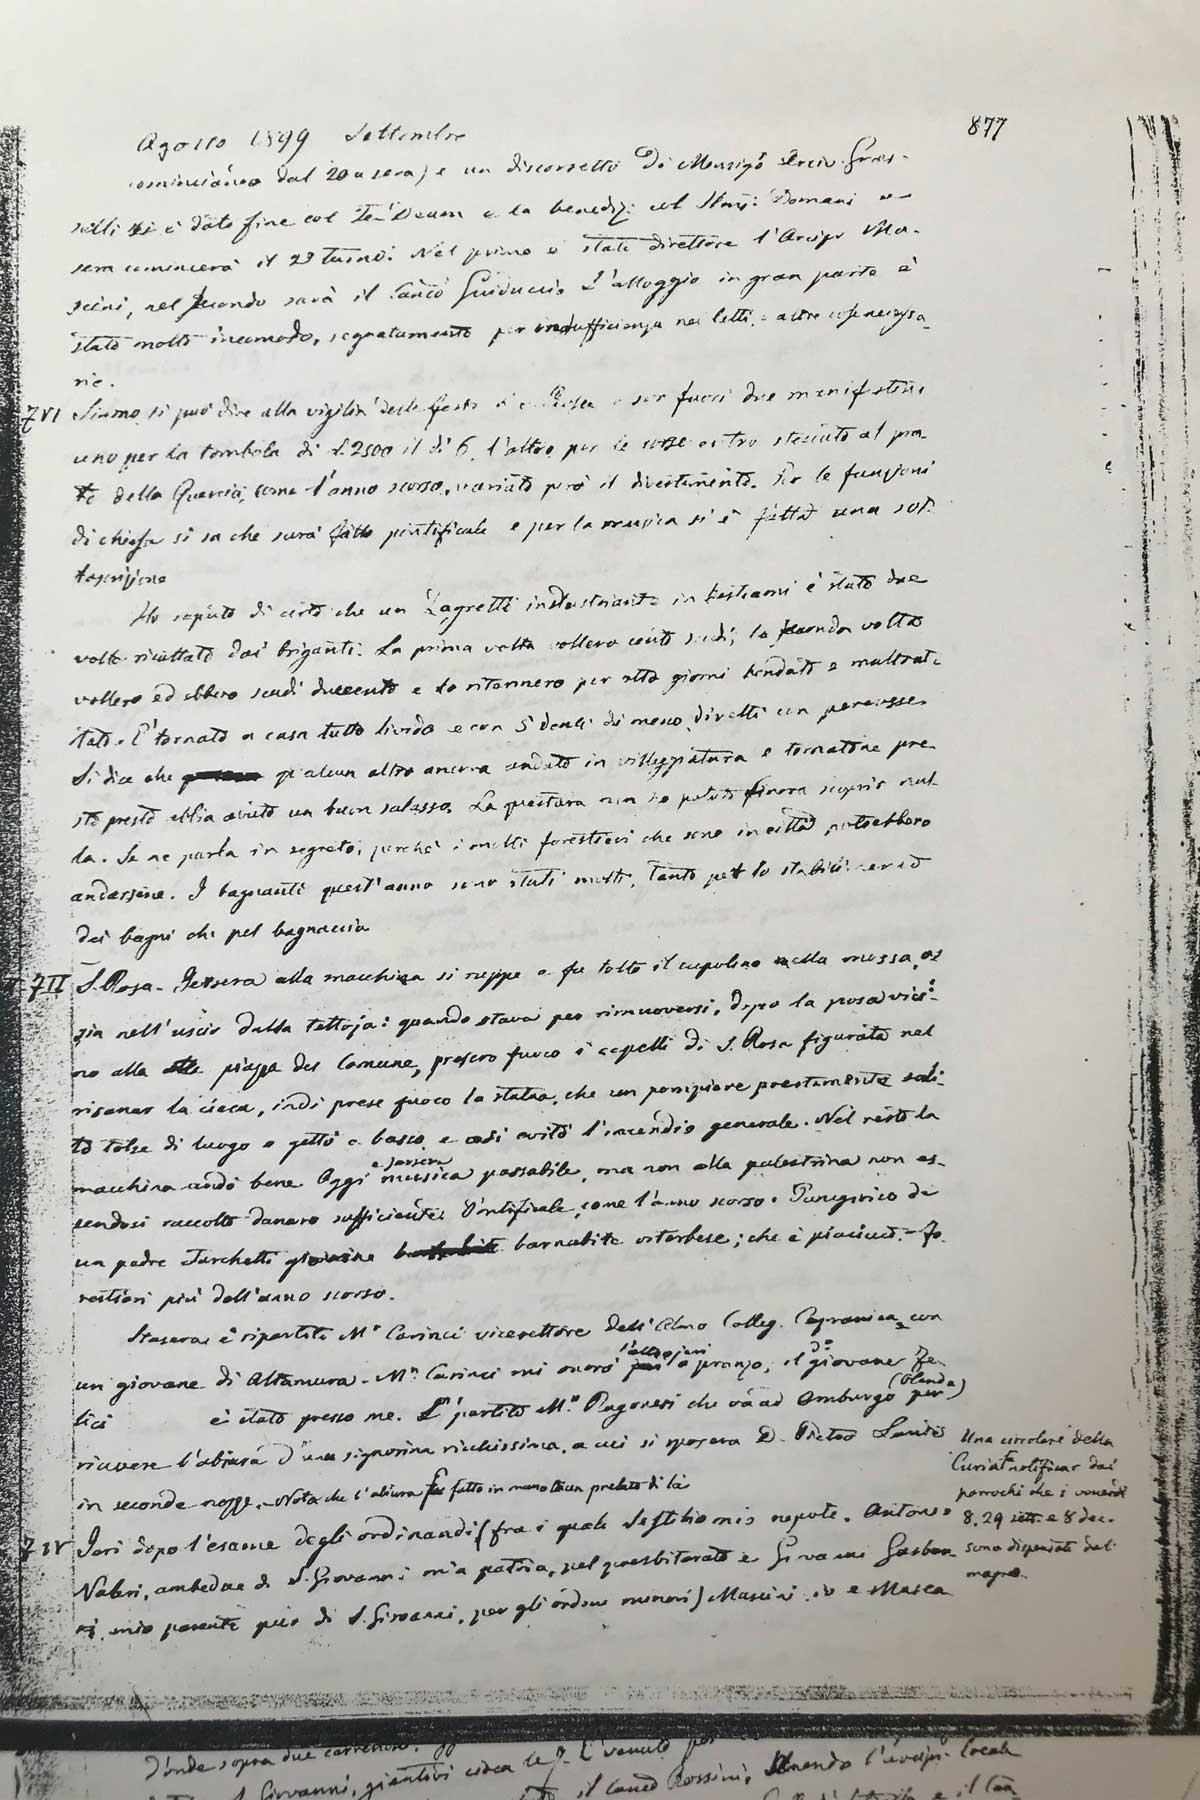 Agosto 1899 Settembre
877
cominciando dal 20 a sera) e un discorsetto di Monsigr Arciv. Gras-
selli si è dato fine col Te Deum e la benediz: col Domani a
sera comincerà il 2º turno. Nel primo è stato direttore l'Arcipr Ma-
scini, nel secondo sarà il Canco Guiducci. L'alloggio in gran parte è
stato molto incomodo, segnatamente per insufficienza nei letti e altre cose necessa-
rie.
7VI Siamo si può dire alla vigilia delle feste di e son fuori due manifestini
uno per la tombola di £.2500 il dì 6, l'altro per le corse entro steccato al pra-
to della Quercia, come l'anno scorso, variato però il divertimento. Per le funzioni
di chiesa si sa che sarà fatto pontificale e per la musica si è fatta una sot-
toscrizione
Ho saputo di certo che un Zagretti industriante in bestiami è stato due
volte ricattato dai briganti. La prima volta vollero cento scudi; la seconda volta
vollero ed ebbero scudi duecento e lo ritennero per otto giorni bendato e maltrat-
tato. È tornato a casa tutto livido e con 5 denti di meno, divelti con percosse.
Si dice che qualcun altro ancora andato in villeggiatura e tornatone pre-
sto presto abbia avuto un buon salasso. La questura non ha potuto finora scoprir nul-
la. Se ne parla in segreto, perché i molti forestieri che sono in città potrebbero
andarsene. I bagnanti quest'anno sono stati molti, tanto per lo stabilimento
dei bagni che pel bagnaccio
7II S. Rosa - Iersera alla macchina si ruppe o fu tolto il cupolino nella mossa, os
sia nell'uscir dalla tettoja: quando stava per rimuoversi, dopo la posa vici-
no alla piazza del Comune, presero fuoco i capelli di S. Rosa figurata nel
risanar la cieca, indi prese fuoco la statua, che un pompiere prestamente sali-
to tolse di luogo e gettò a basso e così evitò l'incendio generale. Nel resto la
macchina andò bene. Oggi e iersera musica passabile, ma non alla palestrina non es-
sendosi raccolto danaro sufficiente. Pontificale, come l'anno scorso. Panegirico di
un padre Turchetti giovine barnabite viterbese; che è piaciuto. - Fo-
restieri più dell'anno scorso.
Stasera è ripartito Mr Carinci vicerettore dell'Almo Colleg. Capranica con
un giovane di Altamura. Mr. Carinci mi onorò l'altro jeri a pranzo; il do giovane Fe-
lici è stato presso me. È partito Mr. Ragonesi che va ad Amburgo (Olanda) per
ricevere l'abiura d'una signorina ricchissima, a cui si sposerà D. Pietro
in seconde nozze. - Nota che l'abiura fu fatta in mano da un prelato di là
7IV Ieri dopo l'esame degli ordinandi (fra i quali mio nepote. Antonio
Valeri, ambedue di S. Giovanni mia patria, pel presbiterato e Giovanni
mio parente pure di S. Giovanni, per gli ordini minori) Mascini, io e
Una circolare della
Curia fa notificar dai
parrochi che i venerdì
8. 29 sett. e 8 dec.
sono dispensati dal
magro.
donde sopra due carrettoni.
S. Giovanni, giuntivi circa le 7. È venuto per
il Canco Rossini, essendo l'Arcipr. locale